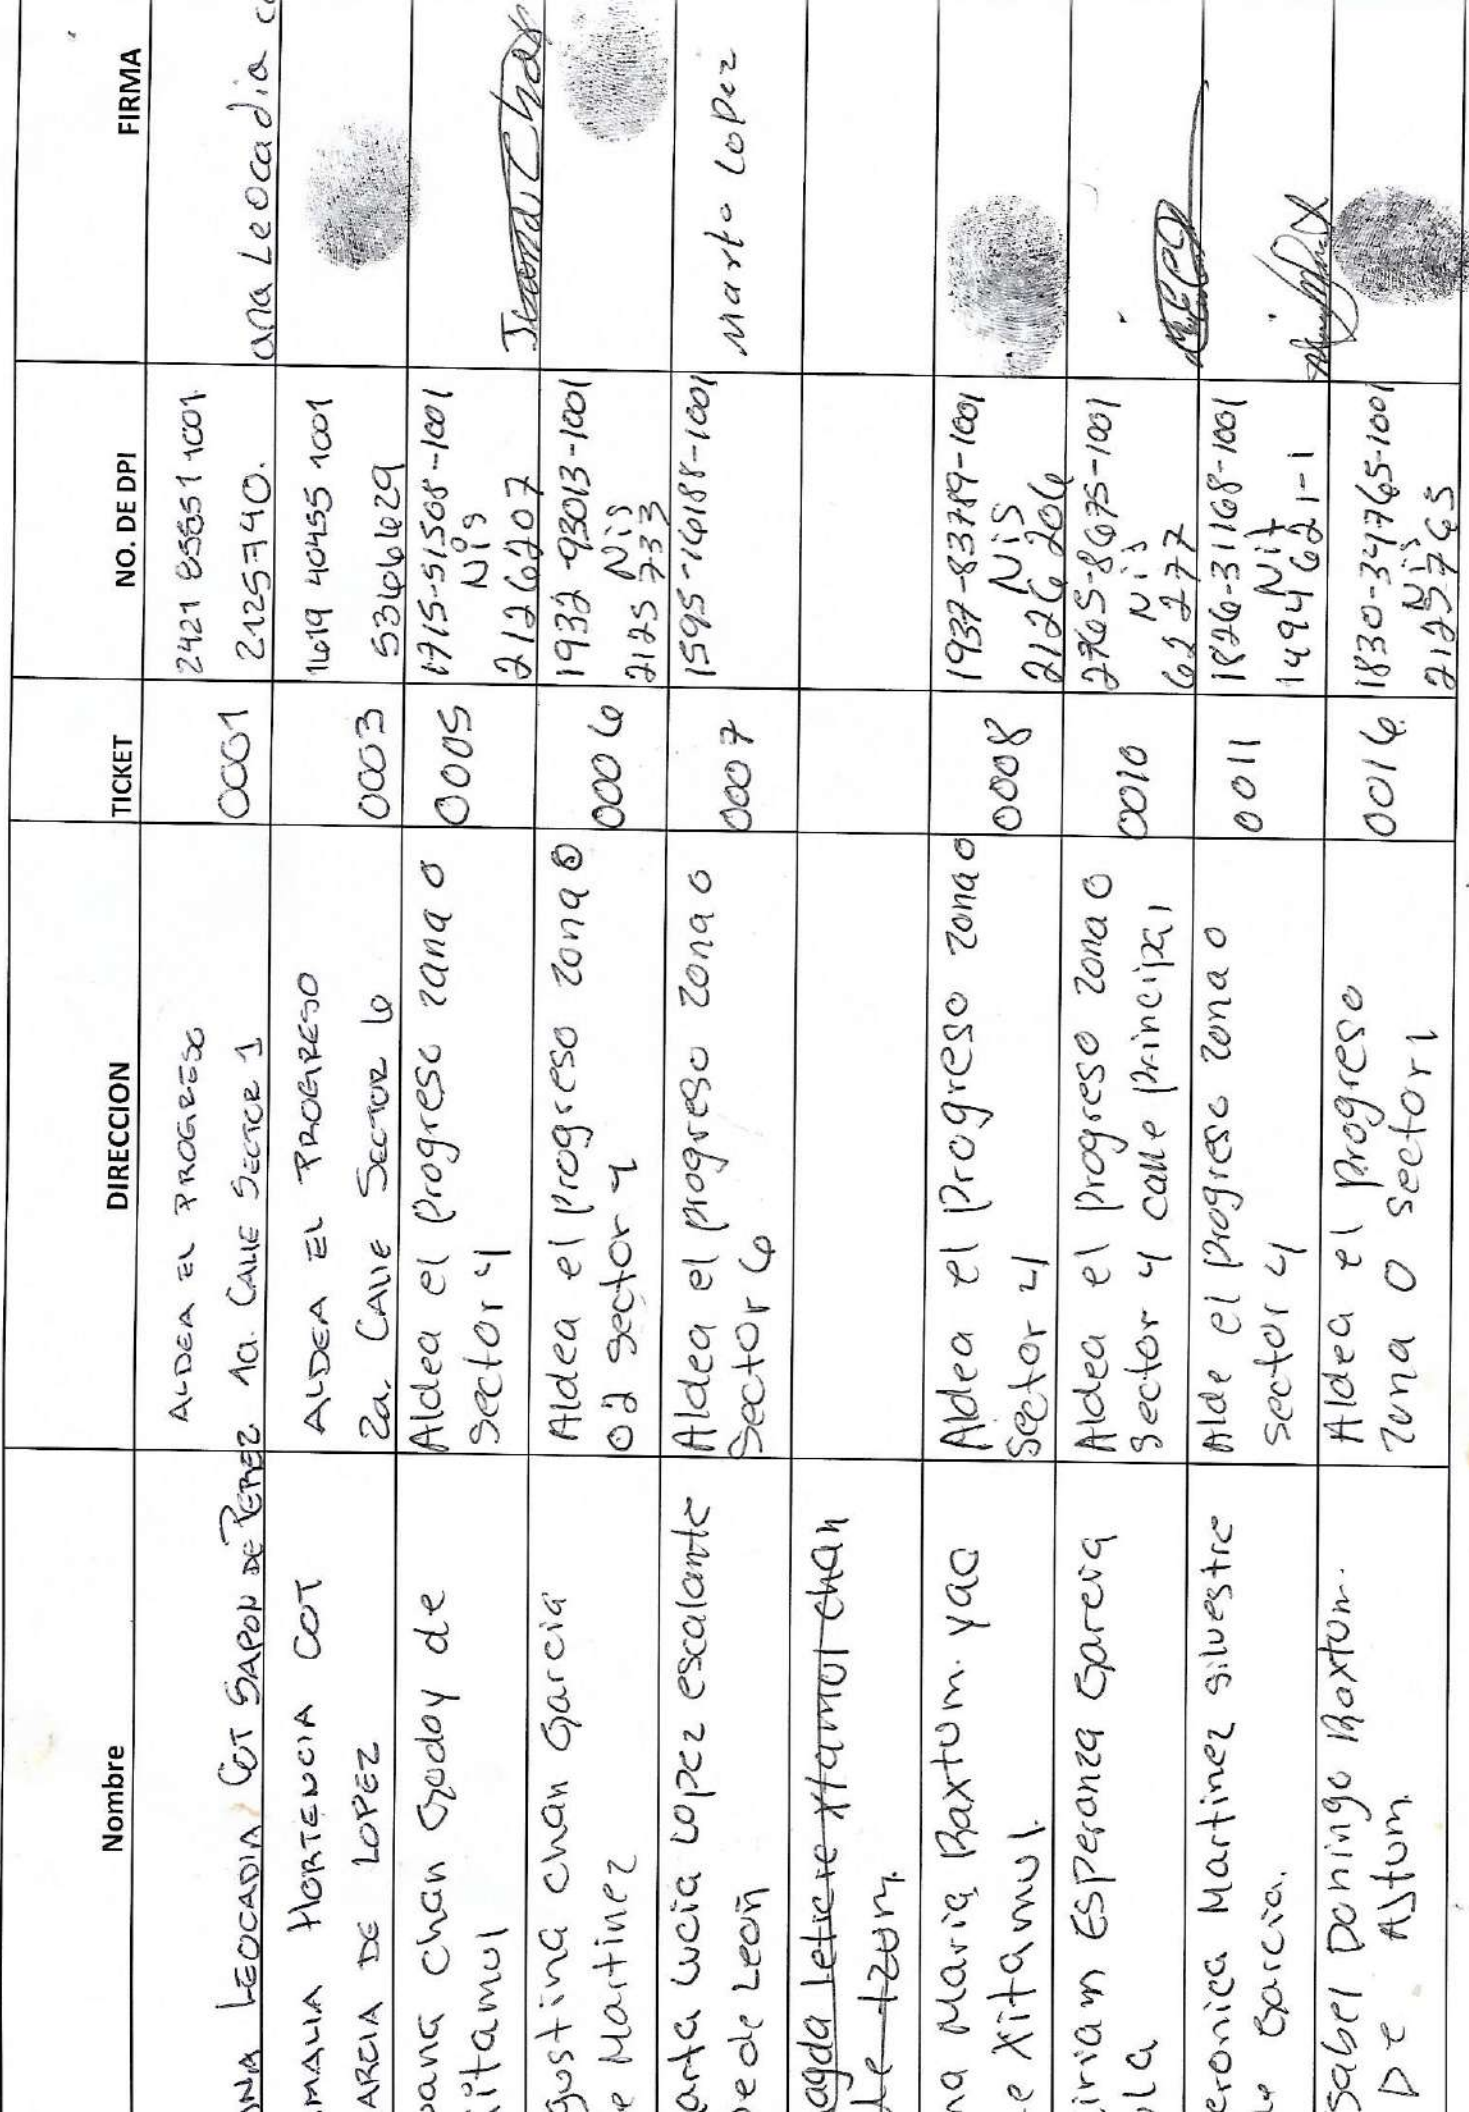 Nombre DIRECCION TICKET NO. DE DPI FIRMA
NA LEOCADIA COT SAPON DE PEREZ
ALDEA EL PROGRESO
1a. CALLE SECTOR 1
0001
2421 85851 1001
2125740.
ana Leocadia co
MALIA HORTENCIA COT
ARCIA DE LOPEZ
ALDEA EL PROGRESO
2a. CALLE SECTOR 6
0003
1619 40455 1001
5366629
oana chan Godoy de
itamul
Aldea el Progreso zana 0
Sector 4
0005
1715-51508-1001
Nis
2126207
gustina chan Garcia
e Martinez
Aldea el progreso zona 0
02 sector 4
0006
1932-93013-1001
Nis
2125733
arta Lucia Lopez escalante
de Leon
Aldea el progreso zona 0
Sector 6
0007
1595-16188-1001
Marta Lopez
agda Leticie Xtamul chan
de tzum.
na Maria Baxtum. yac
e Xitamul.
Aldea el Progreso zona 0
Sector 4
0008
1937-83789-1001
Nis
2126206
iriam Esperanza Garcia
ula
Aldea el Progreso zona 0
Sector 4 calle principal
0010
2765-86675-1001
Nis
622277
eronica Martinez silvestre
e Garcia.
Alde el progreso zona 0
sector 4
0011
1826-31168-1001
Nit
1494621-1
sabel Domingo Baxtum.
De Astum.
Aldea el Progreso
Zona 0 sector 1
0016
1830-34765-1001
Nis
2125765